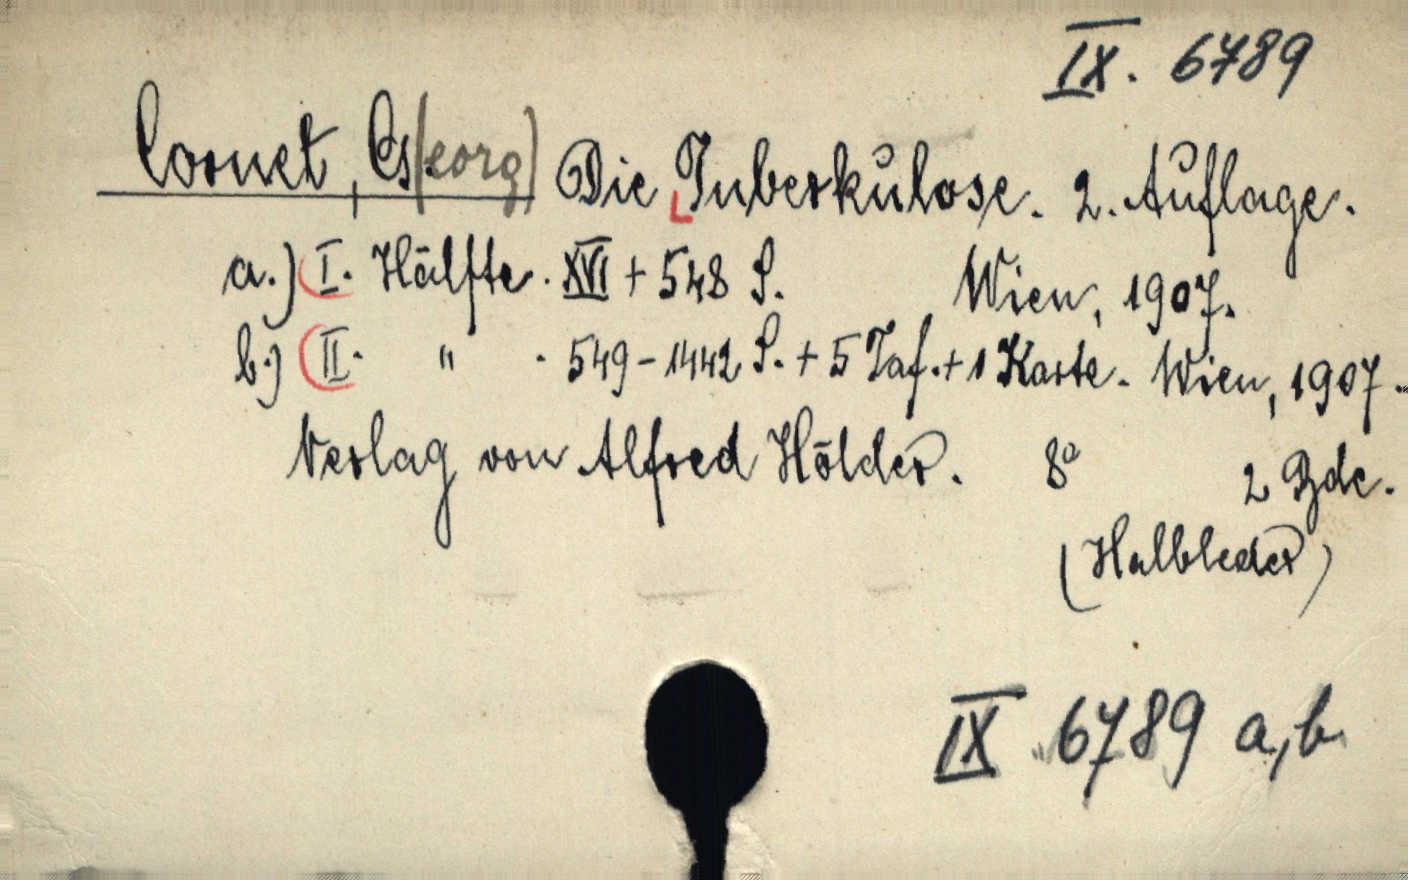 IX. 6789
Cornet, G(eorg) Die Tuberkulose. 2. Auflage.
a.) I. Hälfte. XVI + 548 S. Wien, 1907.
b.) II. " . 549-1442 S. + 5 Taf. + 1 Karte. Wien, 1907.
Verlag von Alfred Hölder. 8° 2 Bde.
(Halbleder)
IX 6789 a, b